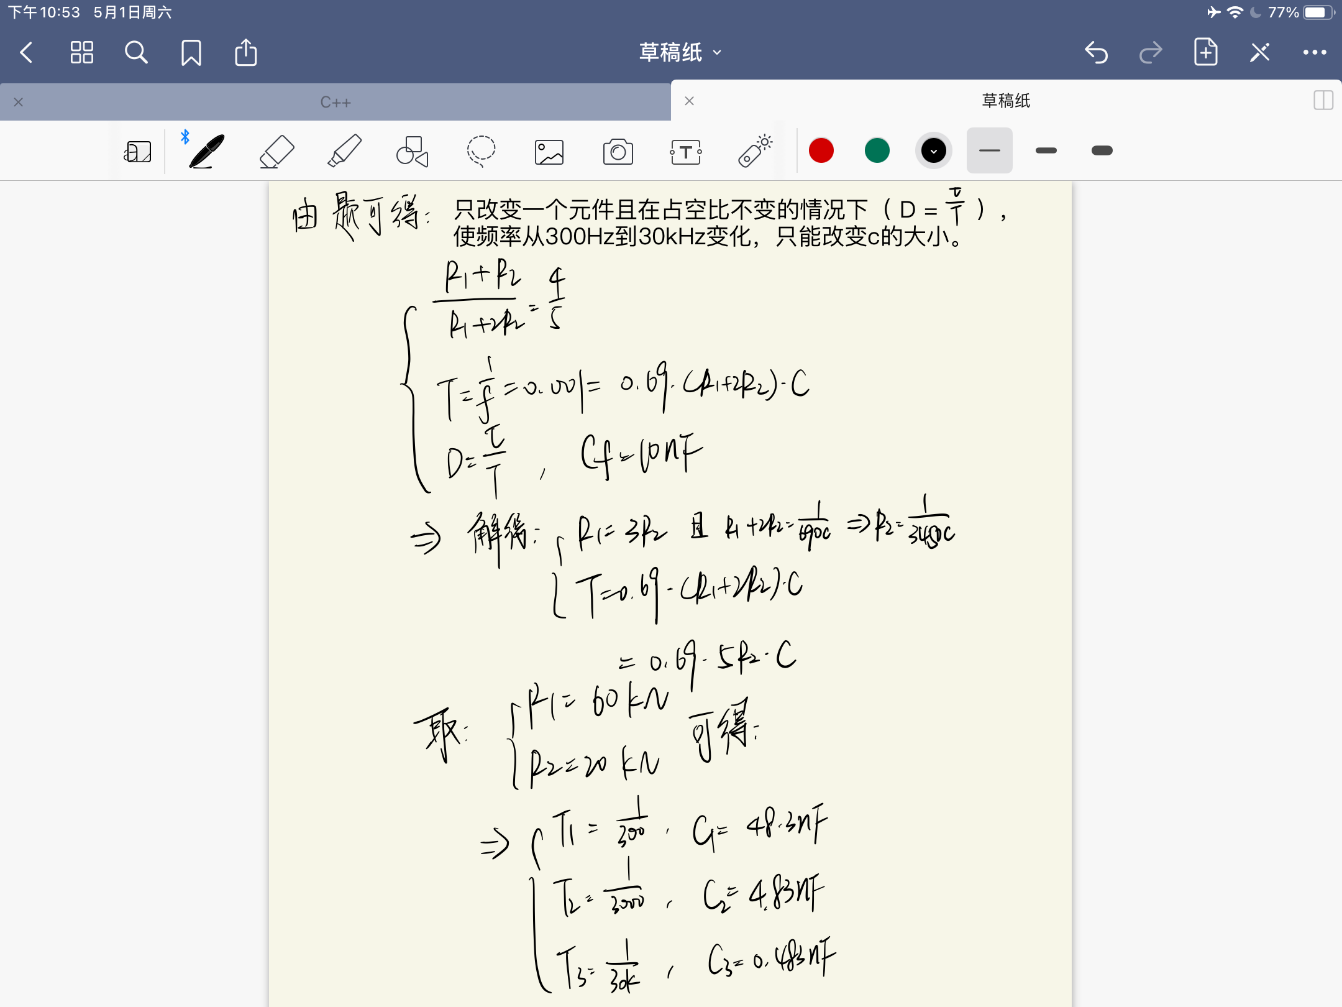 下午10:53 5月1日周六
77%
草稿纸
C++
草稿纸
由题可得: 只改变一个元件且在占空比不变的情况下（ D = τ/T ），
使频率从300Hz到30kHz变化，只能改变c的大小。
(R1+R2)/(R1+2R2) = 4/5
T = 1/f = 0.001 = 0.69·(R1+2R2)·C
D = τ/T , Cf = 10nF
⇒ 解得: R1 = 3R2 且 R1+2R2 = 1/690C ⇒ R2 = 1/3450C
T = 0.69·(R1+2R2)·C
= 0.69·5R2·C
取: R1 = 60kN
R2 = 20kN 可得:
⇒ T1 = 1/300 , C1 = 48.3nF
T2 = 1/3000 , C2 = 4.83nF
T3 = 1/30k , C3 = 0.483nF